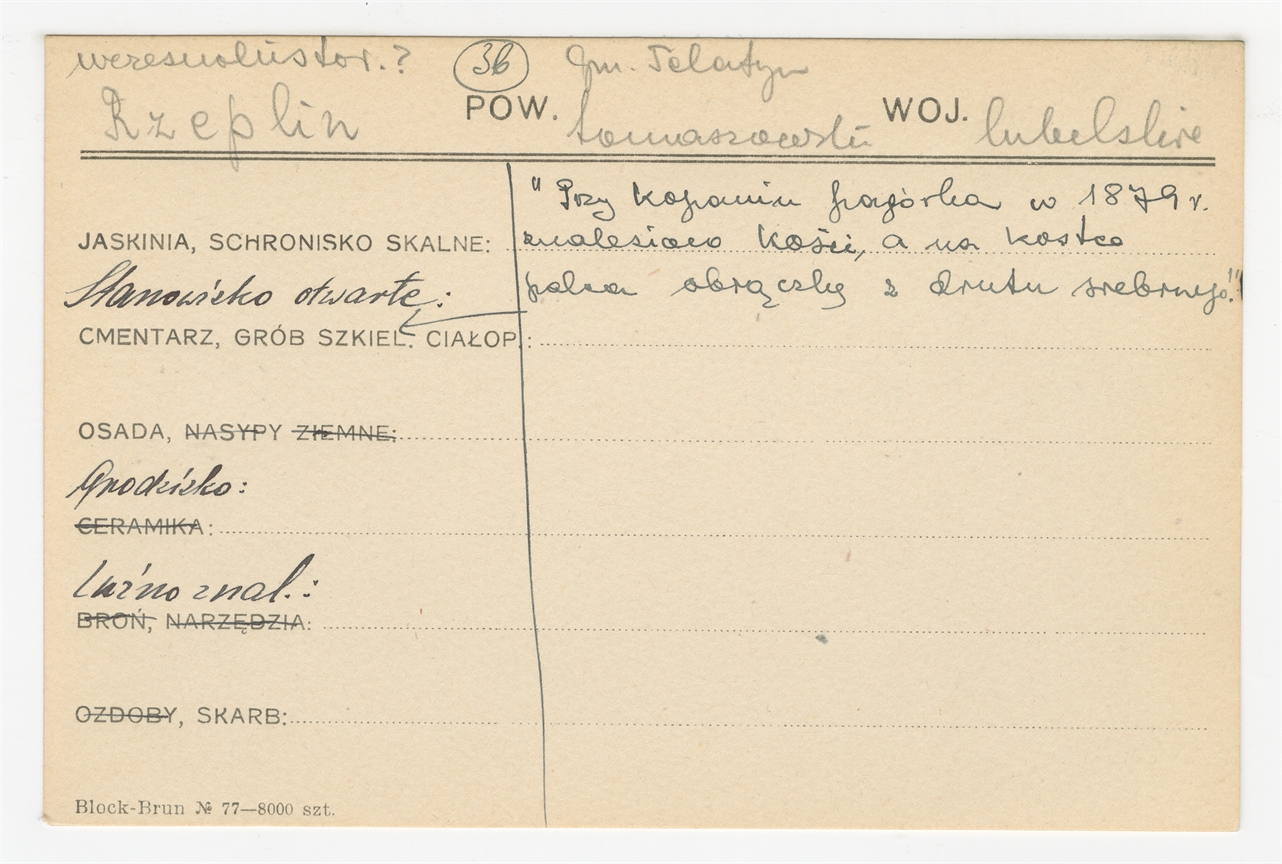 wczesnohistor.? 36 Gm. Telatyn
Rzeplin POW. tomaszowski WOJ. lubelskie
"Przy kopaniu pagórka w 1879 r.
JASKINIA, SCHRONISKO SKALNE: znalesiono kości, a na kostce
Stanowisko otwarte: palca obrączkę z drutu srebrnego!"
CMENTARZ, GRÓB SZKIEL. CIAŁOP.:
OSADA, NASYPY ZIEMNE:
Grodzisko:
CERAMIKA:
Luźno znal.:
BROŃ, NARZĘDZIA:
OZDOBY, SKARB:
Block-Brun № 77—8000 szt.